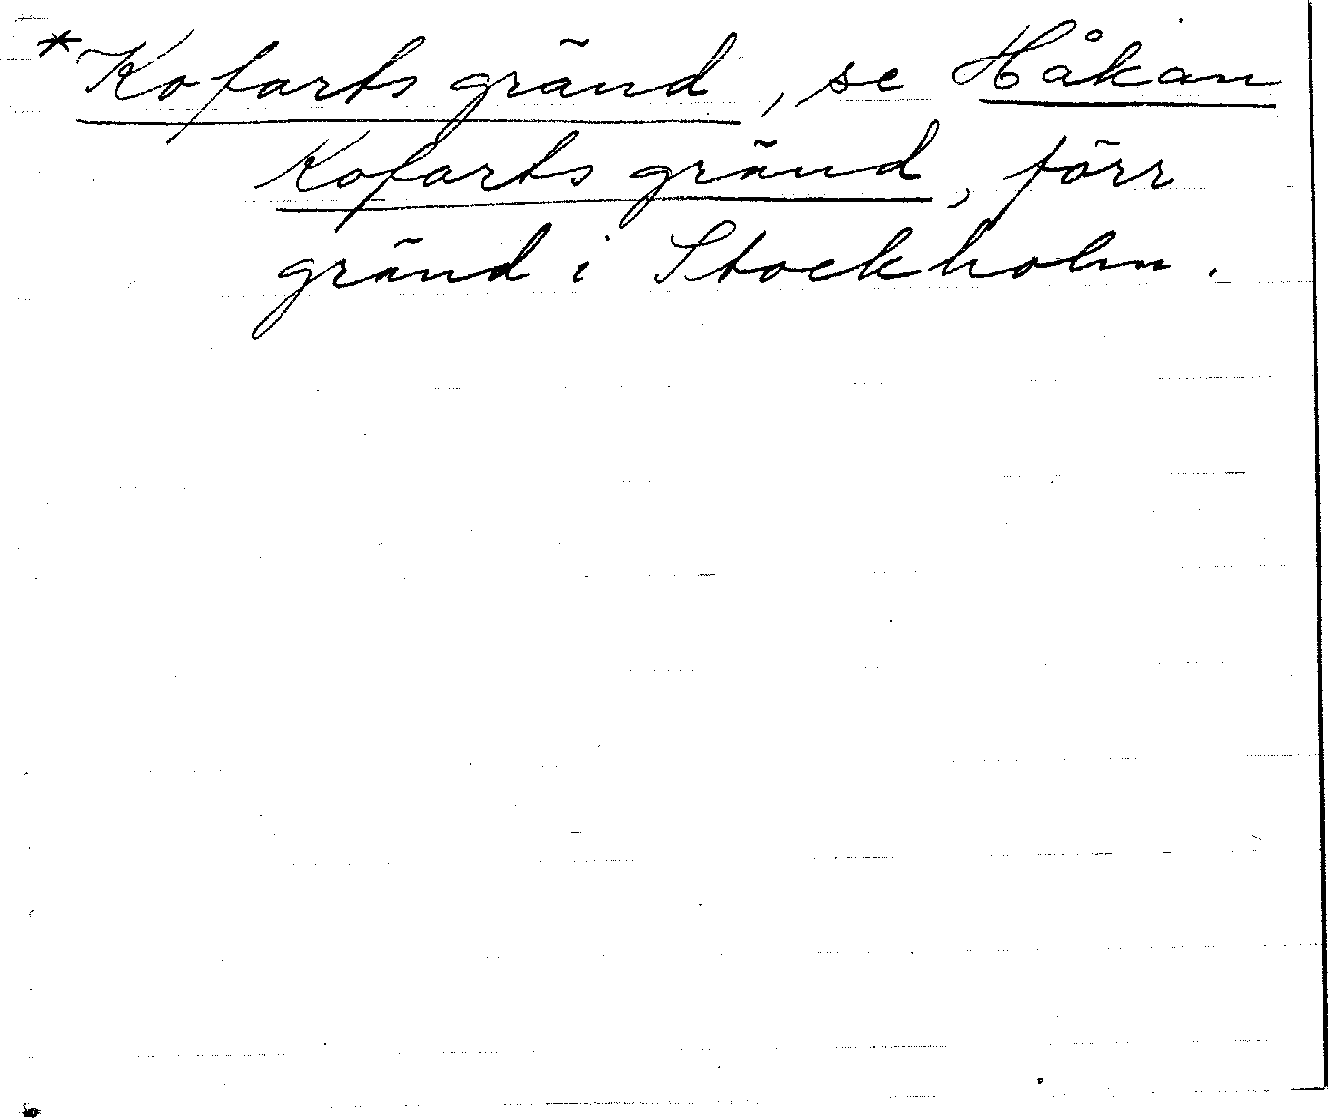 *Kofarts gränd, se Håkan
Kofarts gränd, förr
gränd i Stockholm.